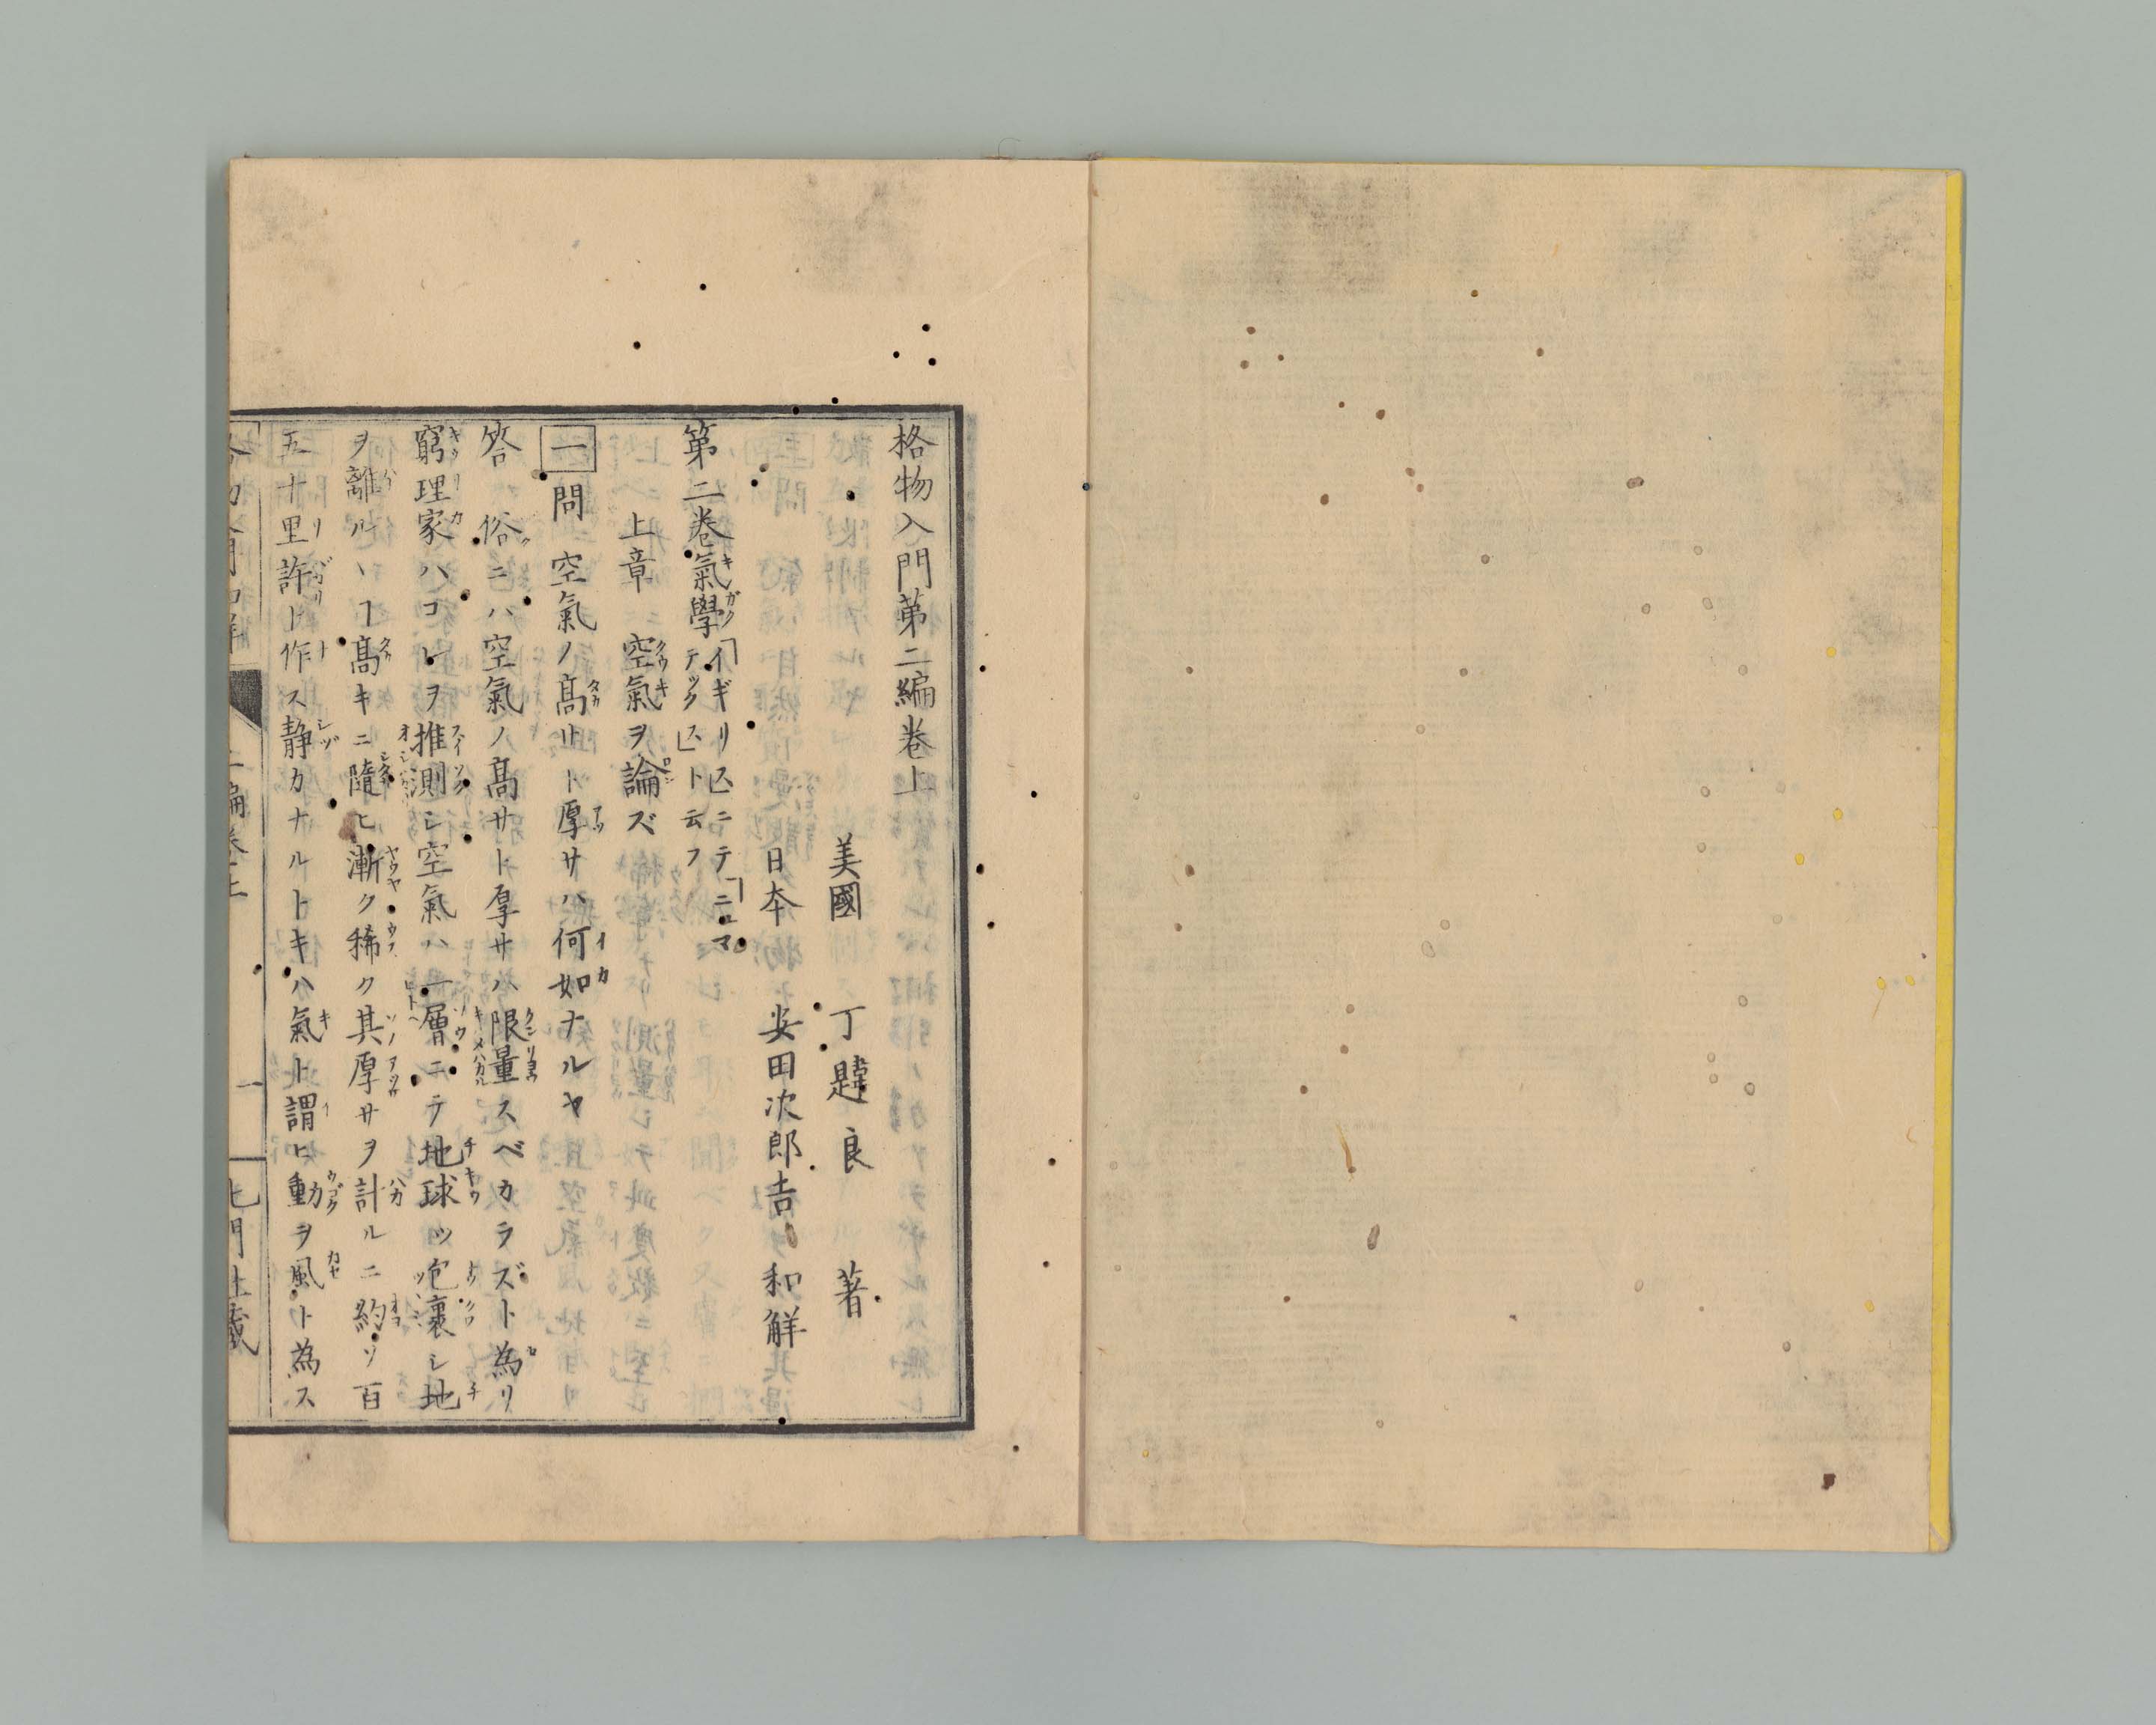 格物入門第二編卷上
美國　丁韙良　著
日本　安田次郎吉　和解
第二卷氣學「イギリスニテ「ニュマテックス」ト云フ
上章　空氣ヲ論ズ
一 問　空氣ノ高サト厚サハ何如ナルヤ
答　俗ニハ空氣ノ高サト厚サハ限量スベカラズト為リ
窮理家ハコレヲ推測シ空氣ハ一層ニテ地球ヲ包裹シ地
ヲ離ルヽヿ高キニ隨ヒ漸ク稀ク其厚サヲ計ルニ約ソ百
五十里許ト作ス靜カナルトキハ氣ト謂ヒ動ヲ風ト為ス
二編卷上　一